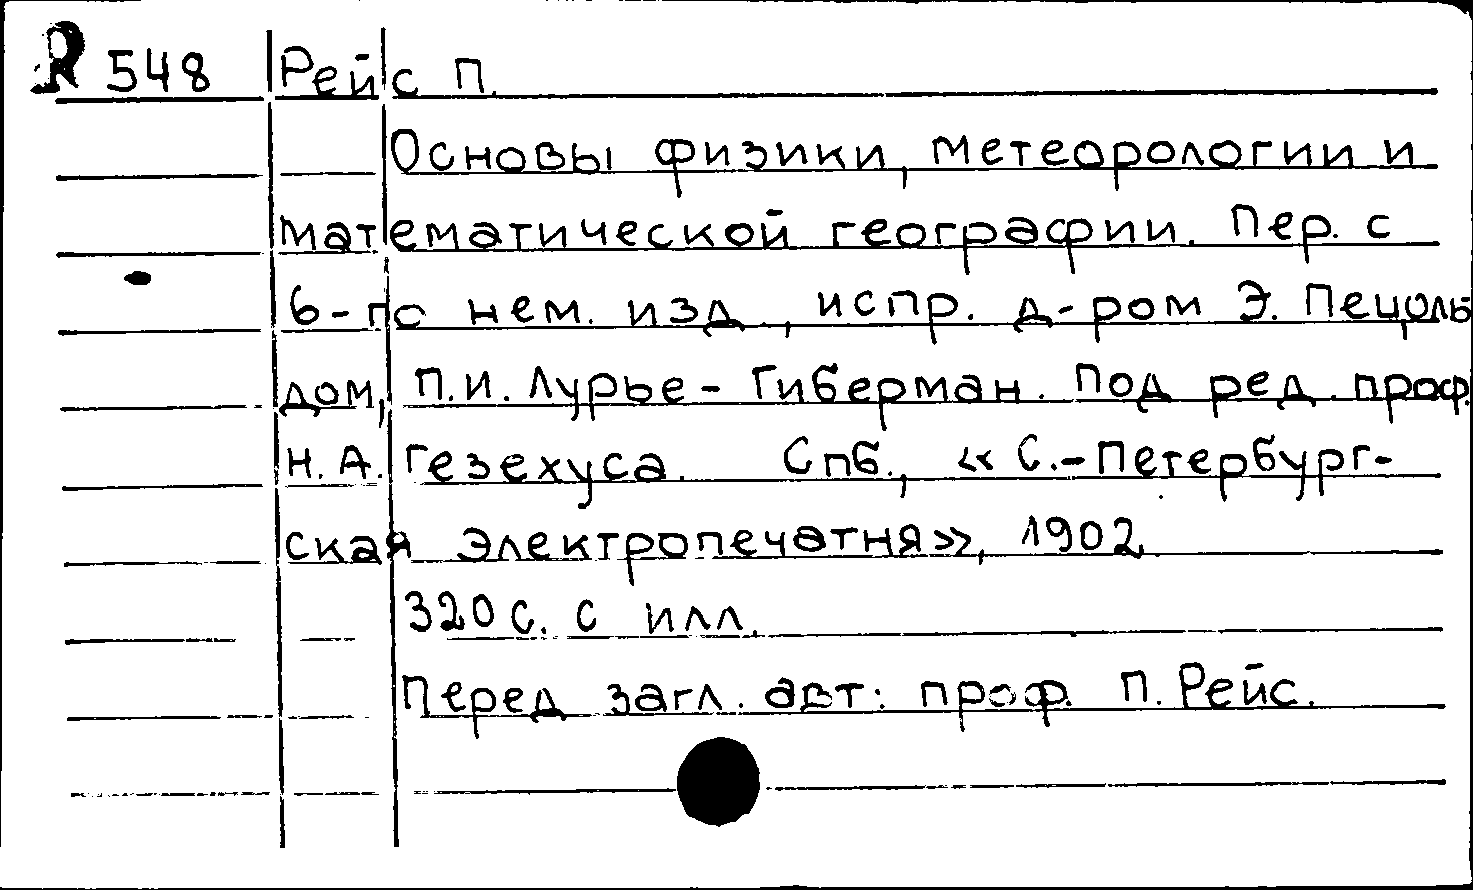 R 548 Рейс П.
Основы физики, метеорологии и
математической географии. Пер. с
6-го нем. изд., испр. д-ром Э. Пецоль
дом, П.И. Лурье-Гиберман. Под ред. проф.
Н.А. Гезехуса. Спб., «С.-Петербург-
ская электропечатня», 1902.
320 с. с илл.
Перед загл. авт: проф. П. Рейс.